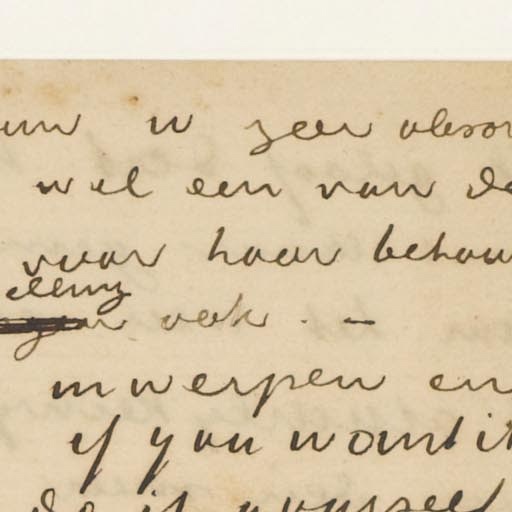 u zeer
wel een van de
voor haar behou
ook . —
inwerpen en
if you want it
do it yourself